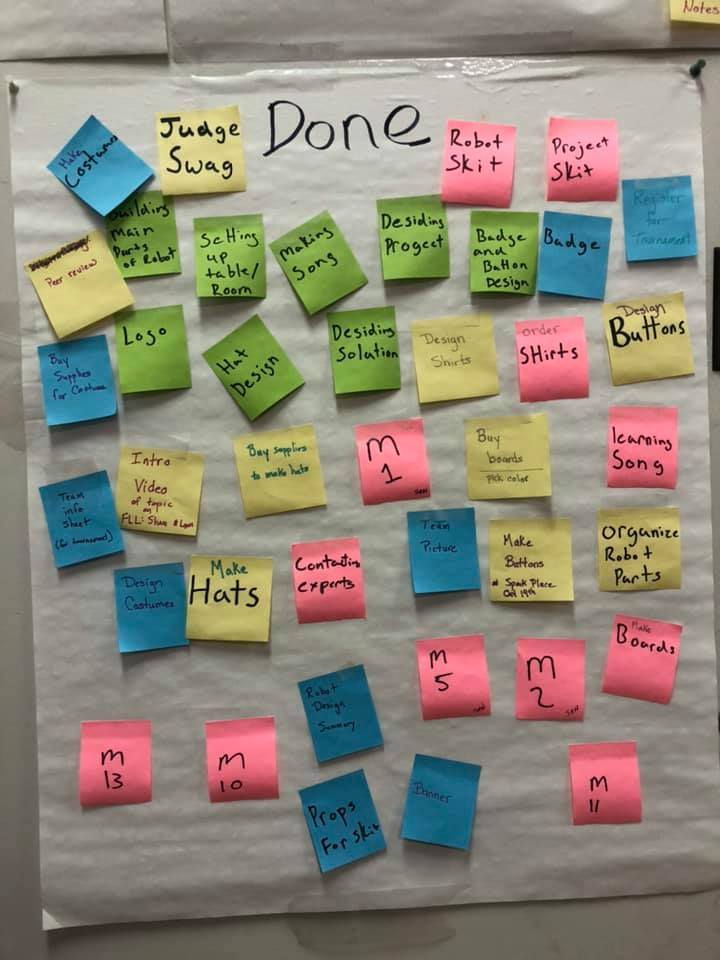 Notes
Done
Make
Costums
Judge
Swag
Robot
Skit
Project
Skit
Register
for
Tournament
Building
main
Parts
of Robot
Setting
up
table/
Room
Making
Song
Desiding
Progect
Badge
and
Button
Design
Badge
Peer review
Logo
Hat
Design
Desiding
Solution
Design
Shirts
order
SHirts
Design
Buttons
Buy
Supplies
for Costume
Intro
Video
of topic
on
FLL:
Buy supplies
to make hats
M
1
Buy
boards
pick color
learning
Song
Team
info
sheet
(for tournament)
Team
Picture
Make
Buttons
Spark Place
Oct 19th
Organize
Robot
Parts
Design
Costumes
Make
Hats
Contacting
experts
M
5
M
2
Make
Boards
Robot
Design
Summary
M
13
M
10
M
11
Props
For Skit
Banner